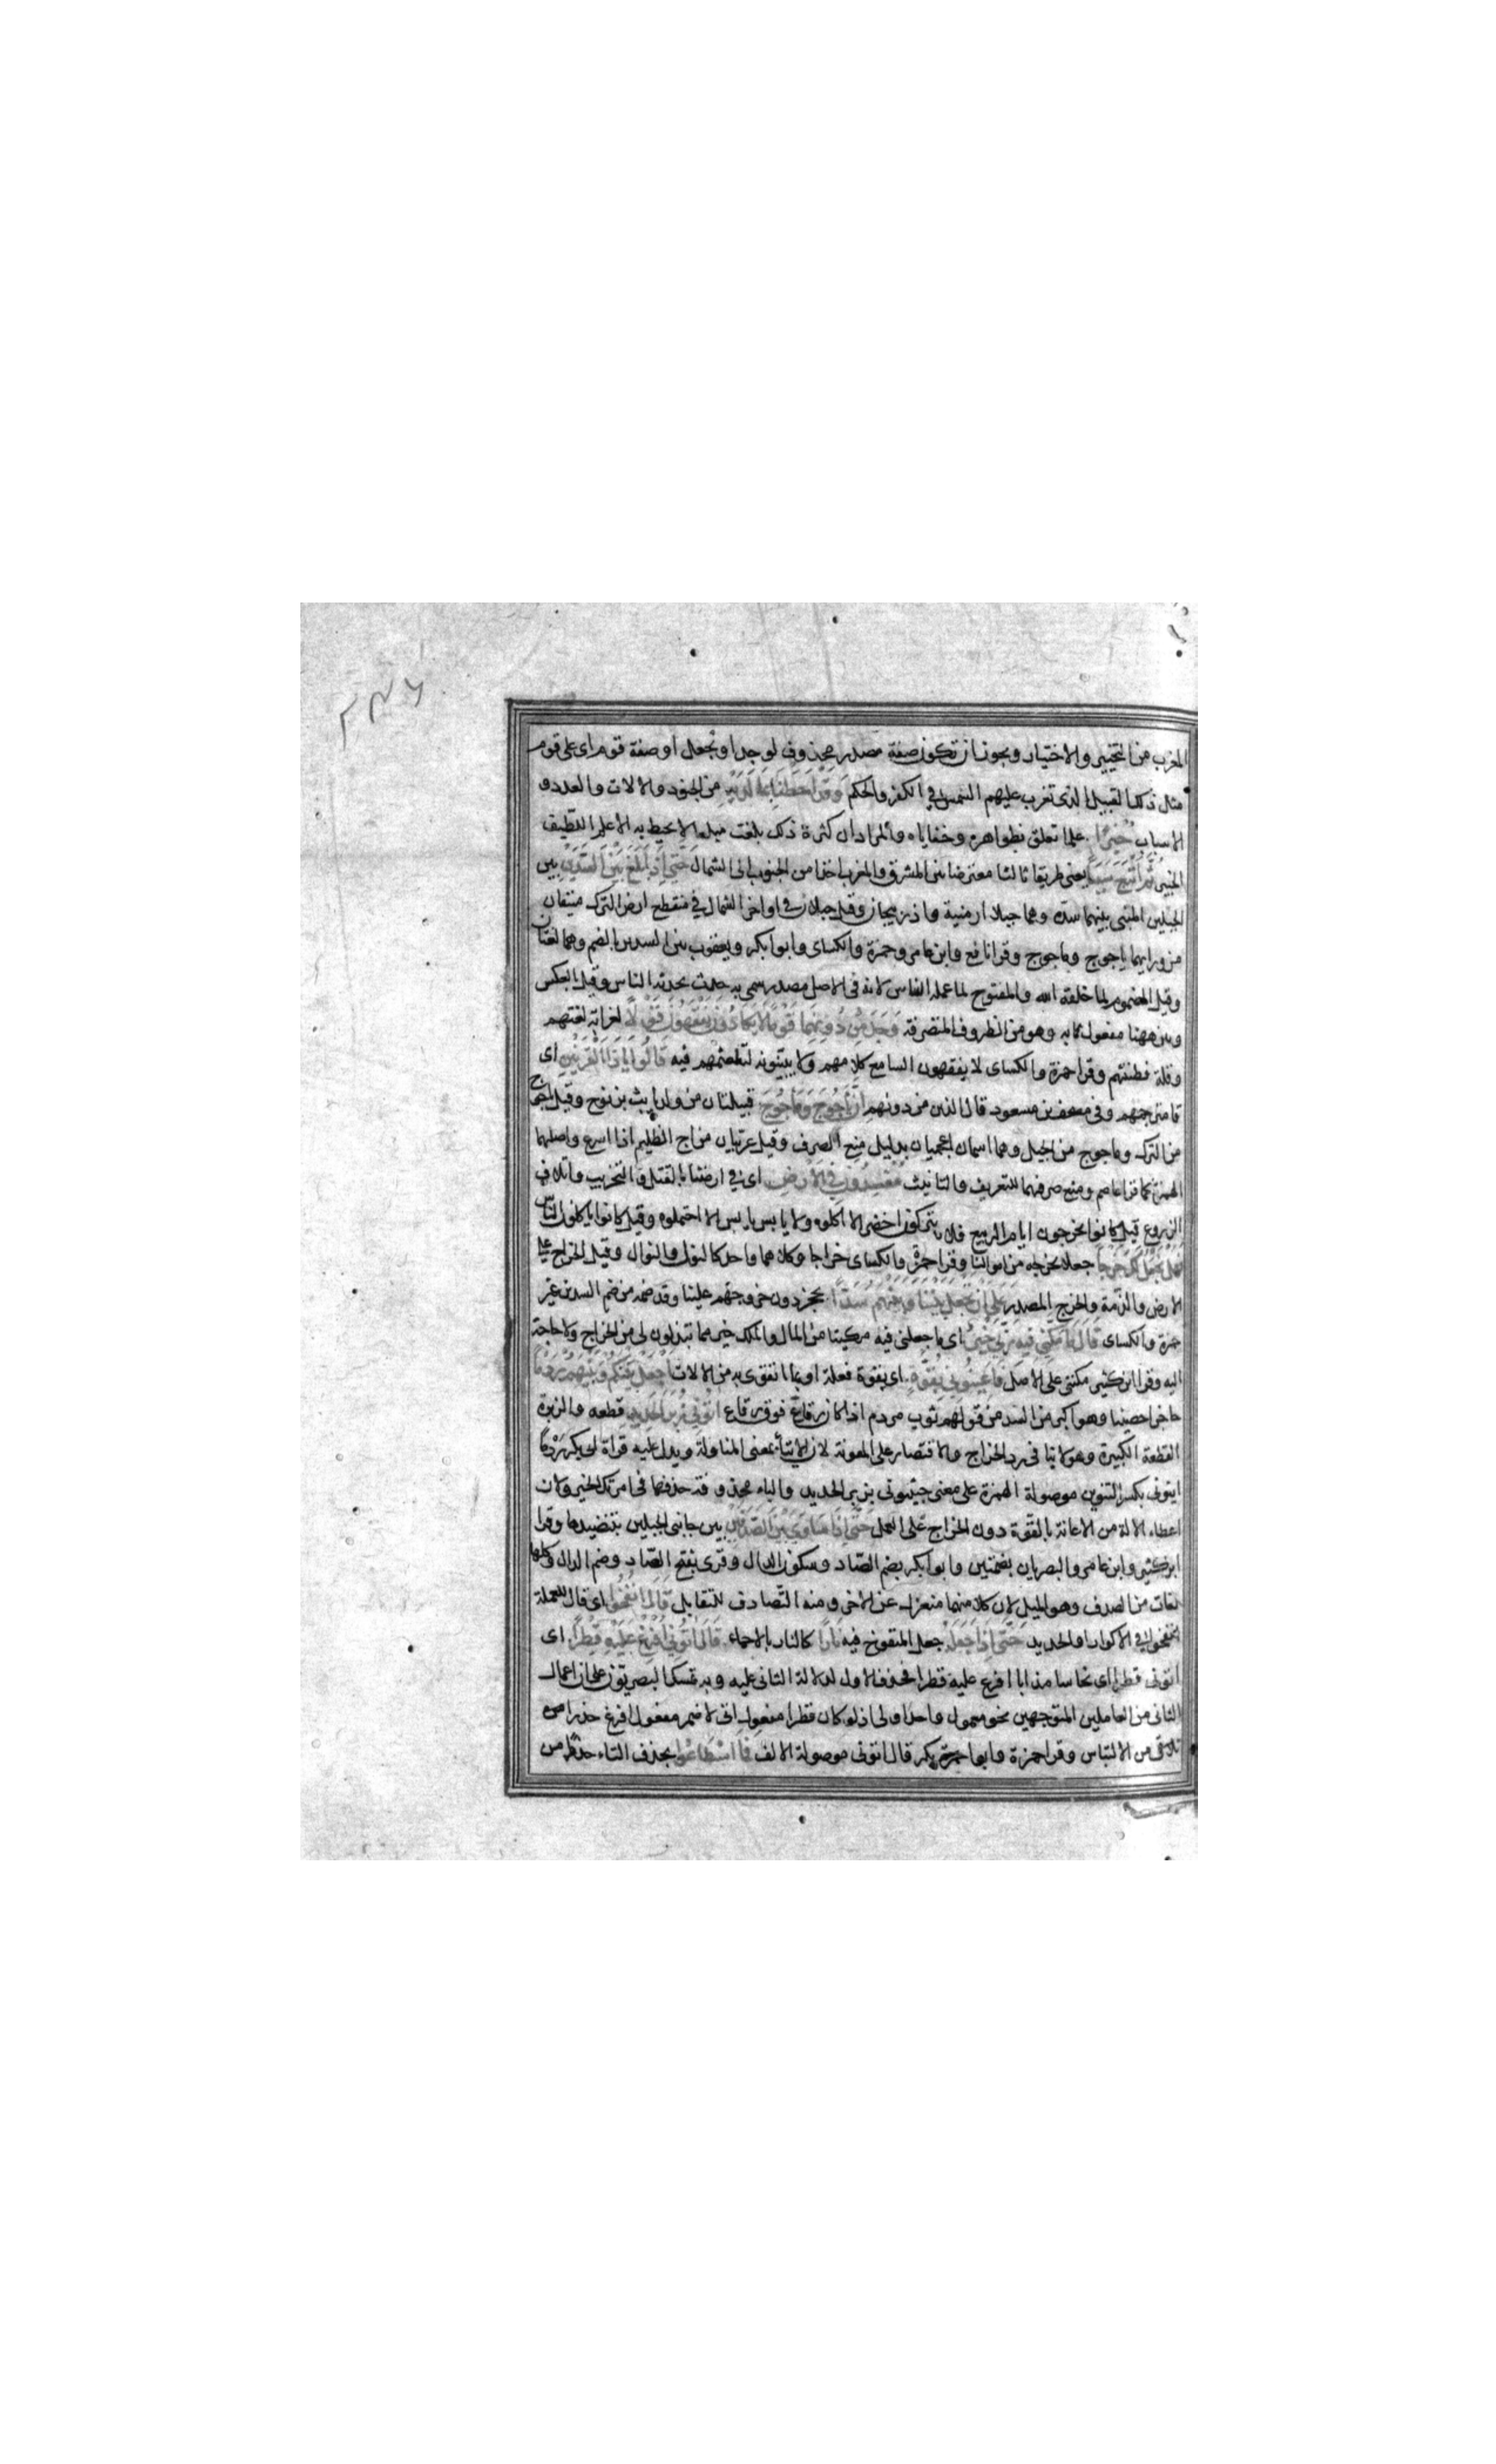 ٢٩٦
المغرب من التخيير والاختيار ويجوز ان تكون صفة مصدر محذوف لوجد او نجعل او صفة قوم اى على قوم
مثل ذلك القبيل الذى تغرب عليهم الشمس فى الكفر والحكم وَقَدْ اَحَطْنَا بِمَا لَدَيْهِ من الجنود والالات والعدد و
الاسباب خُبْرًا علما تعلق بظواهره وخفاياه والمراد ان كثرة ذلك بلغت مبلغا لا يحيط به الا علم اللطيف
الخبير ثُمَّ اَتْبَعَ سَبَبًا يعنى طريقا ثالثا معترضا بين المشرق والمغرب اخذا من الجنوب الى الشمال حَتّٰى اِذَا بَلَغَ بَيْنَ السَّدَّيْنِ بين
الجبلين المبنى بينهما سده وهما جبلا ارمنية واذربيجان وقيل جبلان فى اواخر الشمال فى منقطع ارض الترك منيفان
من ورايهما ياجوج وماجوج وقرا نافع وابن عامر وحمزة والكساى وابوا بكر ويعقوب بين السدين بالضم وهما لغتان
وقيل المضموم لما خلقه الله والمفتوح لما عمله الناس لانه فى الاصل مصدر سمى به حدث يحدثه الناس وقيل بالعكس
وبين ههنا مفعول به وهو من الظروف المتصرفة وَجَدَ مِنْ دُونِهِمَا قَوْمًا لَا يَكَادُونَ يَفْقَهُونَ قَوْلًا لغرابة لغتهم
وقلة فطنتهم وقرا حمزة والكساى لا يفقهون السامع كلامهم ولا يبينونه لتلعثمهم فيه قَالُوا يَا ذَا الْقَرْنَيْنِ اى
قا مترجمهم وفى مصحف بن مسعود قال الذين من دونهم اِنَّ يَاْجُوجَ وَمَاْجُوجَ قبيلتان من ولد يافث بن نوح وقيل ياجوج
من الترك وماجوج من الجيل وهما اسمان اعجميان بدليل منع الصرف وقيل عربيان من اج الظليم اذا اسرع واصلهما
الهمزة كما قرا عاصم ومنع صرفهما للتعريف والتانيث مُفْسِدُونَ فِى الْاَرْضِ اى فى ارضنا بالقتل والتخريب واتلاف
الزروع قيل كانوا يخرجون ايام الربيع فلا يتركون اخضر الا اكلوه ولا يابس الا احتملوه وقيل كانوا ياكلون الناس
فَهَلْ نَجْعَلُ لَكَ خَرْجًا جعلا نخرجه من اموالنا وقرا حمزة والكساى خراجا وكلاهما واحد كالنول والنوال وقيل الخراج على
الارض والذمة والخرج المصدر عَلٰى اَنْ تَجْعَلَ بَيْنَنَا وَبَيْنَهُمْ سَدًّا يحجز دون خروجهم علينا وقد ضمه من ضم السدين غير
حمزة والكساى قَالَ مَا مَكَّنِّى فِيهِ رَبِّى خَيْرٌ اى ما جعلنى فيه مكينا من المال والملك خير مما تبذلون لى من الخراج ولا حاجة
اليه وقرا ابن كثير مكننى على الاصل فَاَعِينُونِى بِقُوَّةٍ اى بقوة فعلة او بما اتقوى به من الالات اَجْعَلْ بَيْنَكُمْ وَبَيْنَهُمْ رَدْمًا
حاجزا حصينا وهو اكبر من السد من قولهم ثوب مردم اذا كان رقاع فوق رقاع اٰتُونِى زُبَرَ الْحَدِيدِ قطعه والزبرة
القطعة الكبيرة وهو لا ينا فى رد الخراج والاقتصار على المعونة لان الايتاء بمعنى المناولة ويدل عليه قراة ابى بكر ردما
ايتونى بكسر التنوين موصولة الهمزة على معنى جيئونى بزبر الحديد والباء محذوفة حذفها فى امرتك الخير ولان
اعطاء الالة من الاعانة بالقوة دون الخراج على العمل حَتّٰى اِذَا سَاوٰى بَيْنَ الصَّدَفَيْنِ بين جانبى الجبلين بتنضيدها وقرا
ابن كثير وابن عامر والبصريان بضمتين وابوا بكر بضم الصاد وسكون الدال وقرى بفتح الصاد وضم الدال وكلها
لغات من الصدف وهو الميل لان كلا منهما منعزل عن الاخر ومنه التصادف للتقابل قَالَ انْفُخُوا اى قال للعملة
انفخوا فى الاكوار والحديد حَتّٰى اِذَا جَعَلَهُ جعل المنفوخ فيه نَارًا كالنار بالاحماء قَالَ اٰتُونِى اُفْرِغْ عَلَيْهِ قِطْرًا اى
اتونى قطرا اى نحاسا مذابا افرغ عليه قطرا فحذف الاول لدلالة الثانى عليه وبه تمسك البصريون على ان اعمال
الثانى من العاملين المتوجهين نحو معمول واحد اولى اذ لو كان قطرا مفعول اتى لاضمر مفعول افرغ حذرا من
من الالتباس وقرا حمزة وابوا بكر قال اتونى موصولة الالف فَمَا اسْطَاعُوا بحذف التاء حذرا من